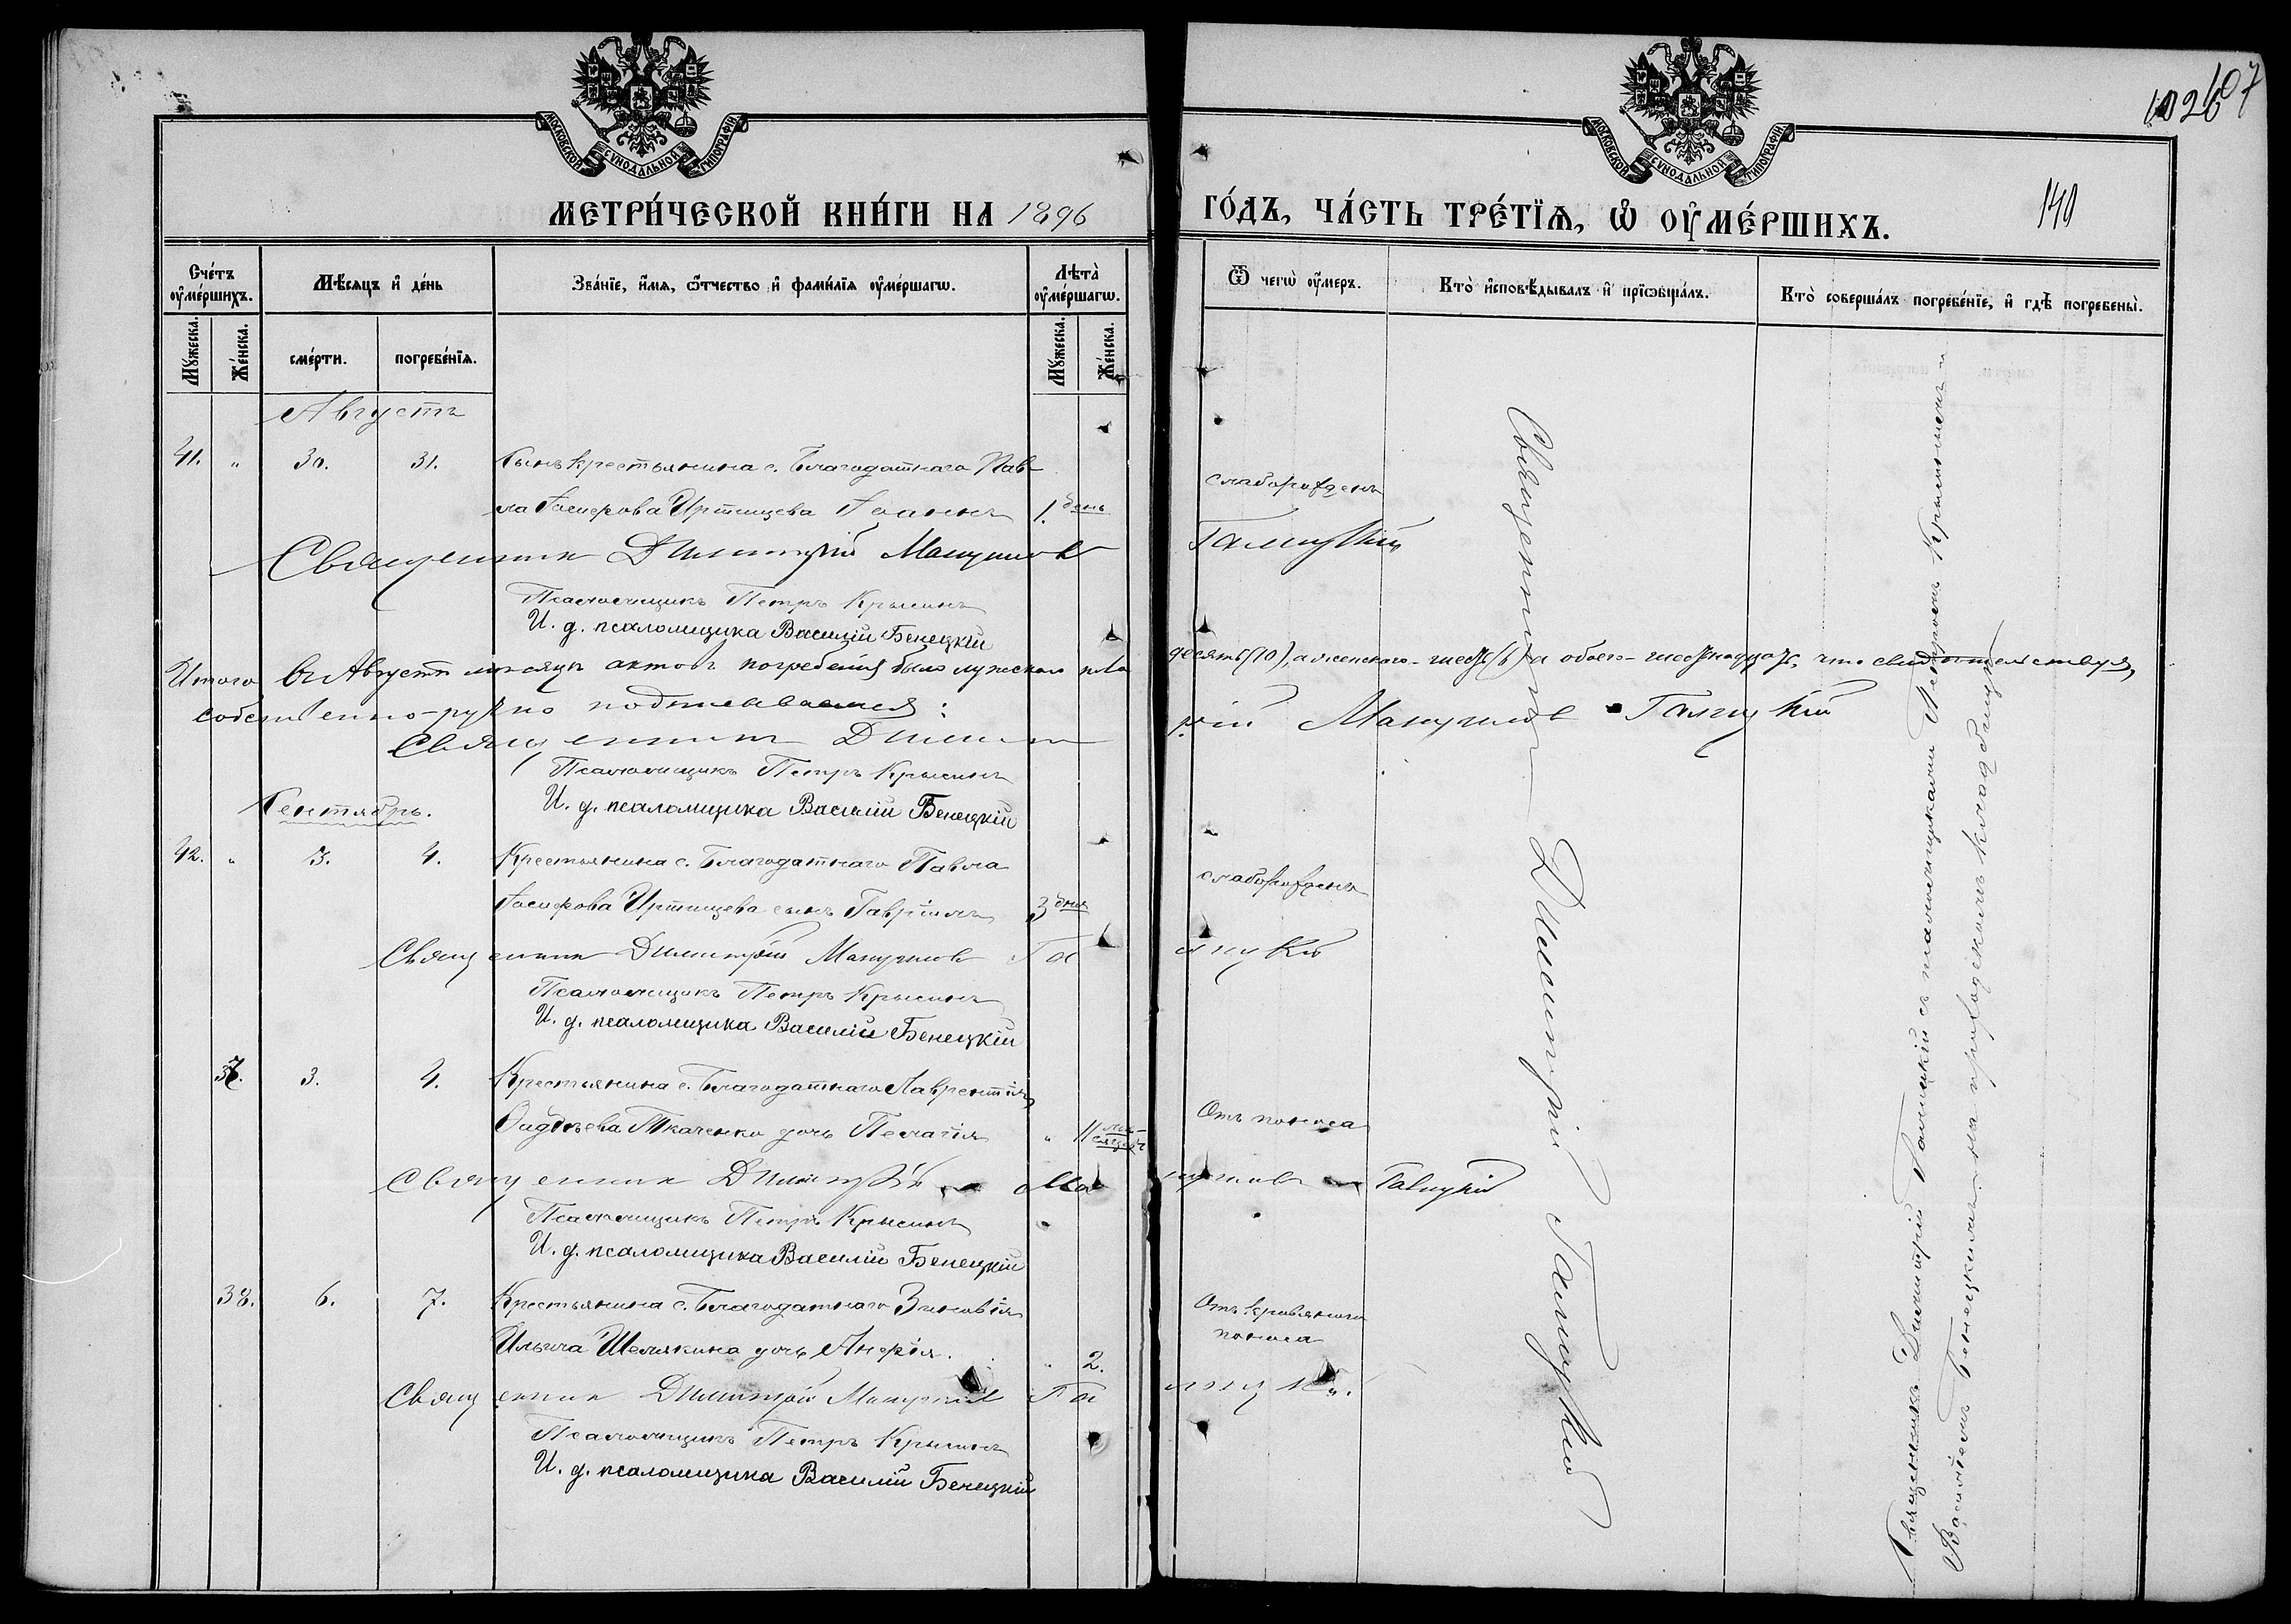 МОСКОВСКОЙ СУНОДАЛЬНОЙ ТИПОГРАФІИ
МОСКОВСКОЙ СУНОДАЛЬНОЙ ТИПОГРАФІИ
107
140
МЕТРИ́ЧЕСКОЙ КНИ́ГИ НА 1896 ГО́ДЪ, ЧА́СТЬ ТРЕ́ТІѦ, Ѡ ОУ҆МЕ́РШИХЪ.
Сче́тъ оу҆ме́ршихъ.
Мѣ́сяцъ и҆ де́нь
Зва́нїе, и҆́мя, ѻ҆́тчество и҆ фами́лїя оу҆ме́ршагѡ.
Лѣта̀ оу҆ме́ршагѡ.
Ѿ чегѡ̀ оу҆́меръ.
Кто̀ и҆сповѣ́дывалъ и҆ прїѡбща́лъ.
Кто̀ соверша́лъ погребе́нїе, и҆ гдѣ̀ погребены̀.
Мꙋ́жеска.
Же́нска.
сме́рти.
погребе́нїя.
Мꙋ́жеска.
Же́нска.
Августъ
41. " 30. 31. Сынъ крестьянина с. Благодатнаго Пав-
ла Іосифова Иртищева Іоаннъ 1. день слаборожденъ
Священникъ Димитрій Галицкій
Псаломщикъ Петръ Крысинъ
И. д. псаломщика Василій Бенецкій
Итого въ Августѣ мѣсяцѣ актовъ погребенія было мужескаго пола десять (10), а женскаго - шесть (6) а обоего - шестнадцать, что свидѣтельствуя,
собственно-ручно подписываемся:
Священникъ Димитрій Галицкій
Псаломщикъ Петръ Крысинъ
И. д. псаломщика Василій Бенецкій
Сентябрь.
42. " 3. 4. Крестьянина с. Благодатнаго Павла
Іосифова Иртищева сынъ Гавріилъ 3 дня слаборожденъ
Священникъ Димитрій Галицкій
Псаломщикъ Петръ Крысинъ
И. д. псаломщика Василій Бенецкій
37. 3. 4. Крестьянина с. Благодатнаго Лаврентія
Ѳаддѣева Ткаченко дочь Пелагія " 11 мѣсяцевъ Отъ поноса
Священникъ Димитрій Галицкій
Псаломщикъ Петръ Крысинъ
И. д. псаломщика Василій Бенецкій
38. 6. 7. Крестьянина с. Благодатнаго Зиновія
Ильича Шелякина дочь " 2. Отъ кроваваго поноса
Священникъ Димитрій Галицкій
Псаломщикъ Петръ Крысинъ
И. д. псаломщика Василій Бенецкій
Священникъ Димитрій Галицкій
Священникъ Димитрій Галицкій съ псаломщиками Петромъ Крысинымъ и
Василіемъ Бенецкимъ на приходскомъ кладбищѣ